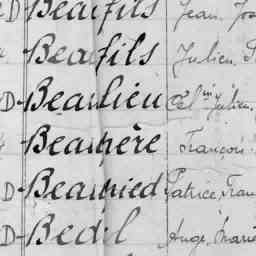 D Beaufils Jean, Jos
Beaufils Julien,
D Beaulieu Cél in Julien,
Beaupère François
D Beaupied Patrice, Fran
D Bedel Ange, Marie